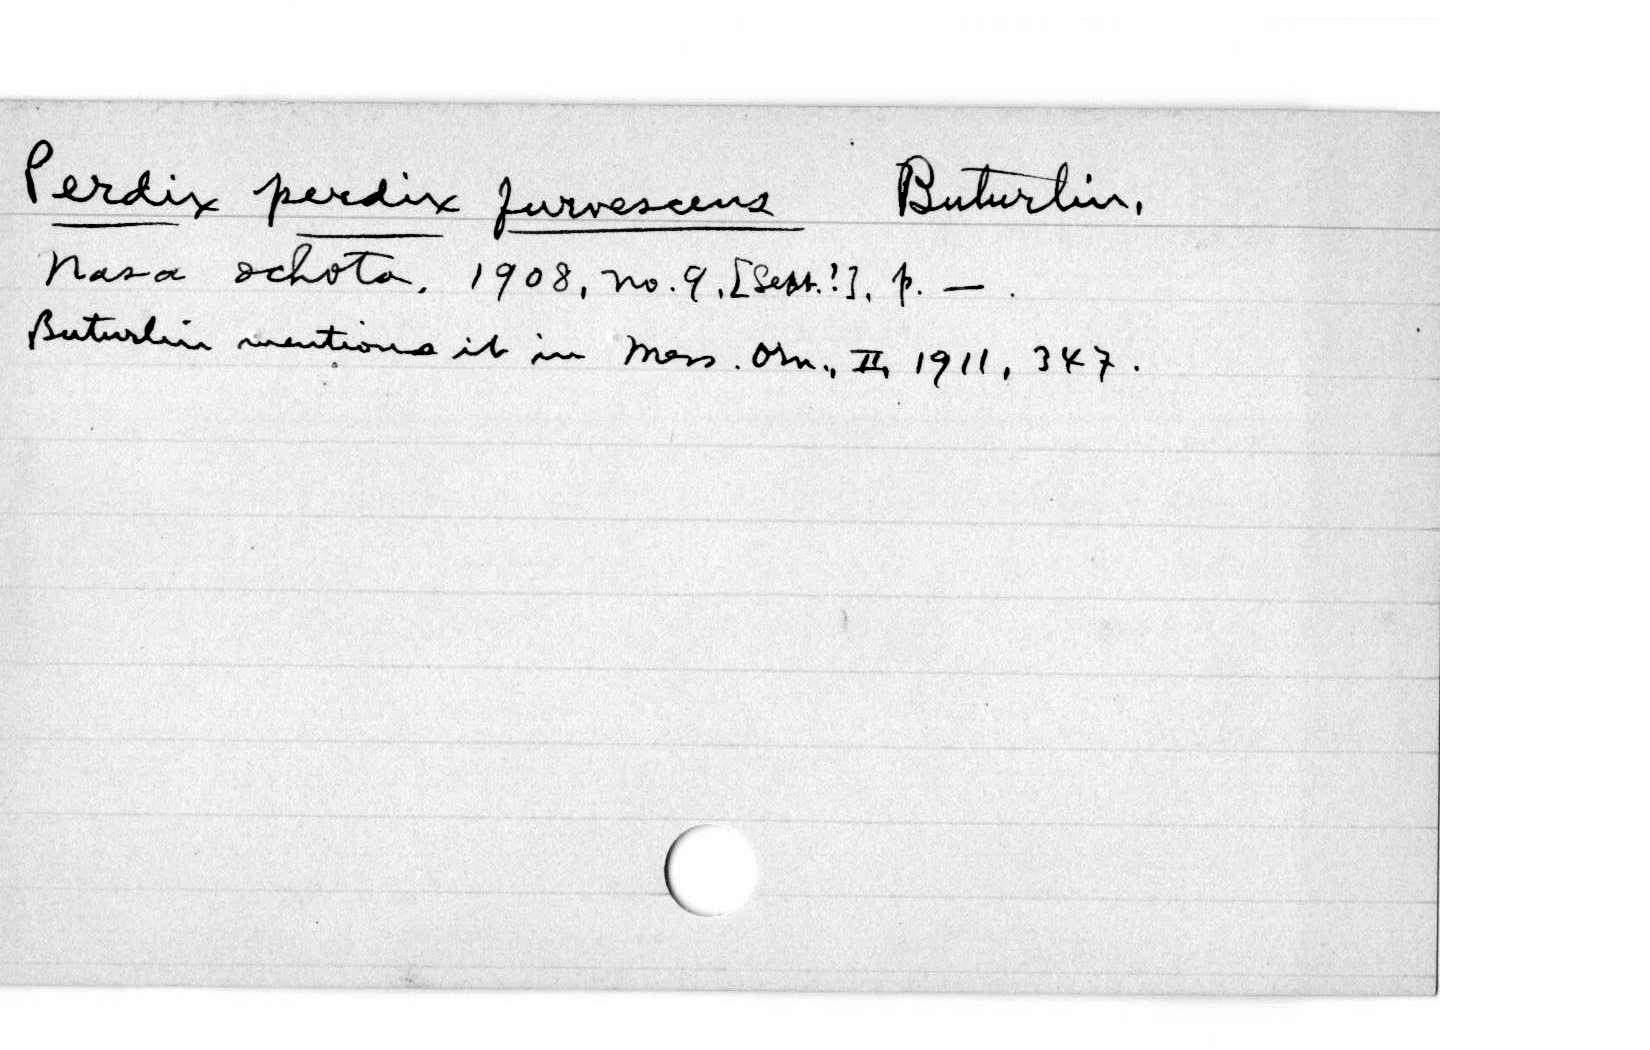 Perdix perdix furvescens Buturlin.
Nasa ochota, 1908, no. 9, [Sept.!], p. — .
Buturlin mentions it in Mess. Orn., II, 1911, 347.